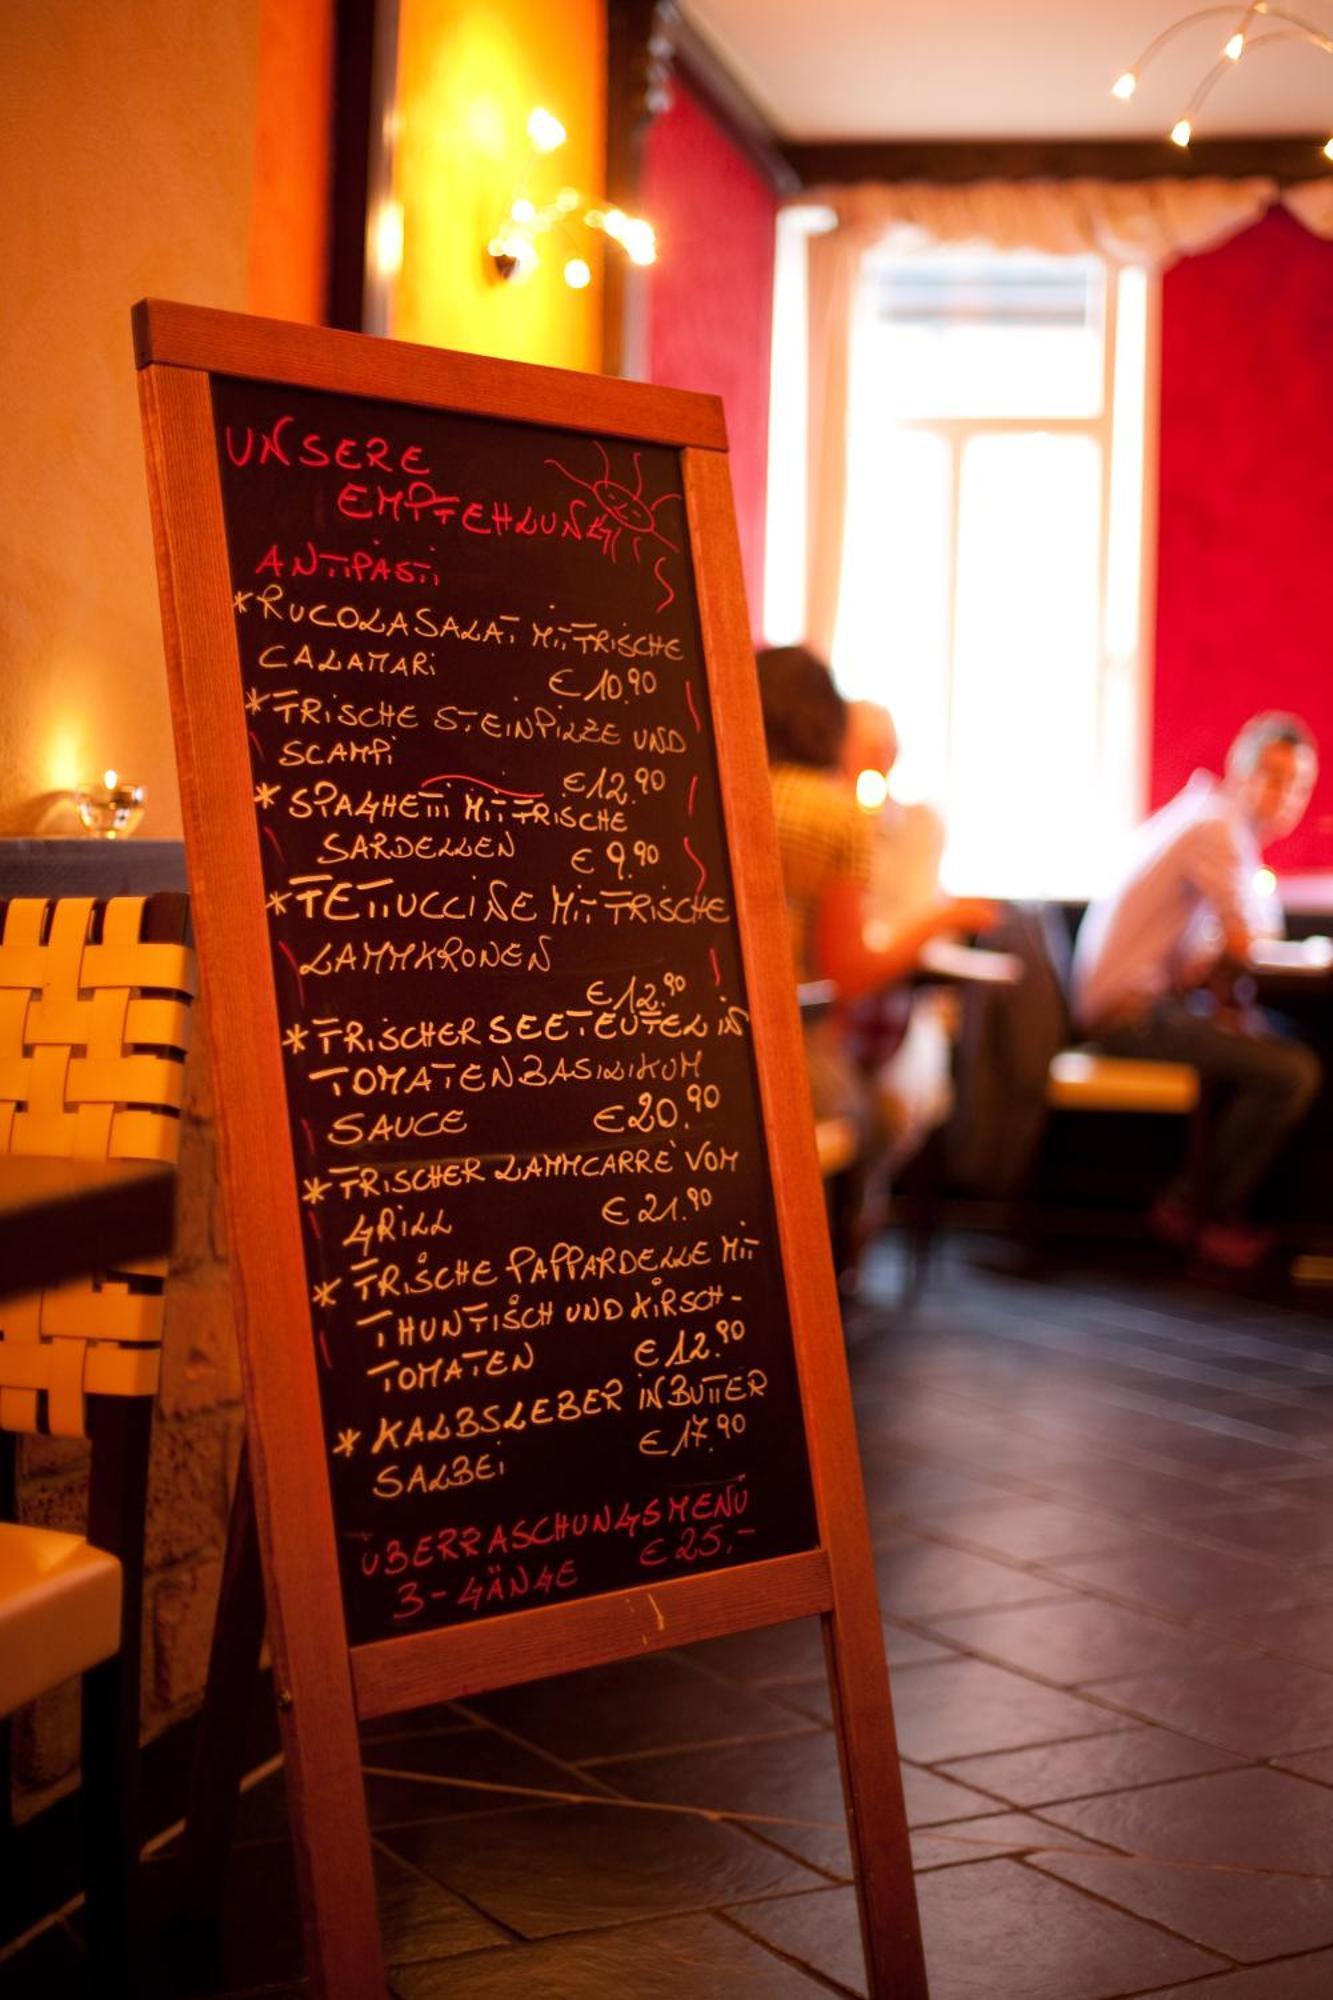 UNSERE
EMPFEHLUNG
ANTIPASTI
*RUCOLASALAT MIT FRISCHE
CALAMARI
€ 10.90
*FRISCHE STEINPILZE UND
SCAMPI
€12.90
*SPAGHETTI MIT FRISCHE
SARDELLEN € 9.90
*FETTUCCINE MIT FRISCHE
LAMMKRONEN
€ 12.90
*FRISCHER SEETEUFEL IN
TOMATENBASILIKUM
SAUCE €20.90
*FRISCHER LAMMCARRÈ VOM
GRILL € 21.90
*FRISCHE PAPPARDELLE MIT
THUNFISCH UND KIRSCH-
TOMATEN € 12.90
*KALBSLEBER IN BUTTER
SALBEI € 17.90
ÜBERRASCHUNGSMENÜ
3-GÄNGE € 25.-